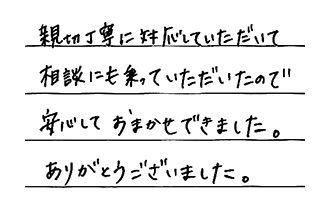 親切丁寧に対応していただいて
相談にも乗っていただいたので
安心しておまかせできました。
ありがとうございました。